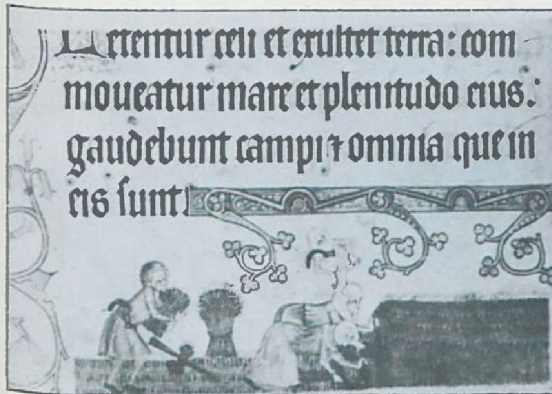 Letentur celi et exultet terra: com
moueatur mare et plenitudo eius:
gaudebunt campi ⁊ omnia que in
eis sunt.